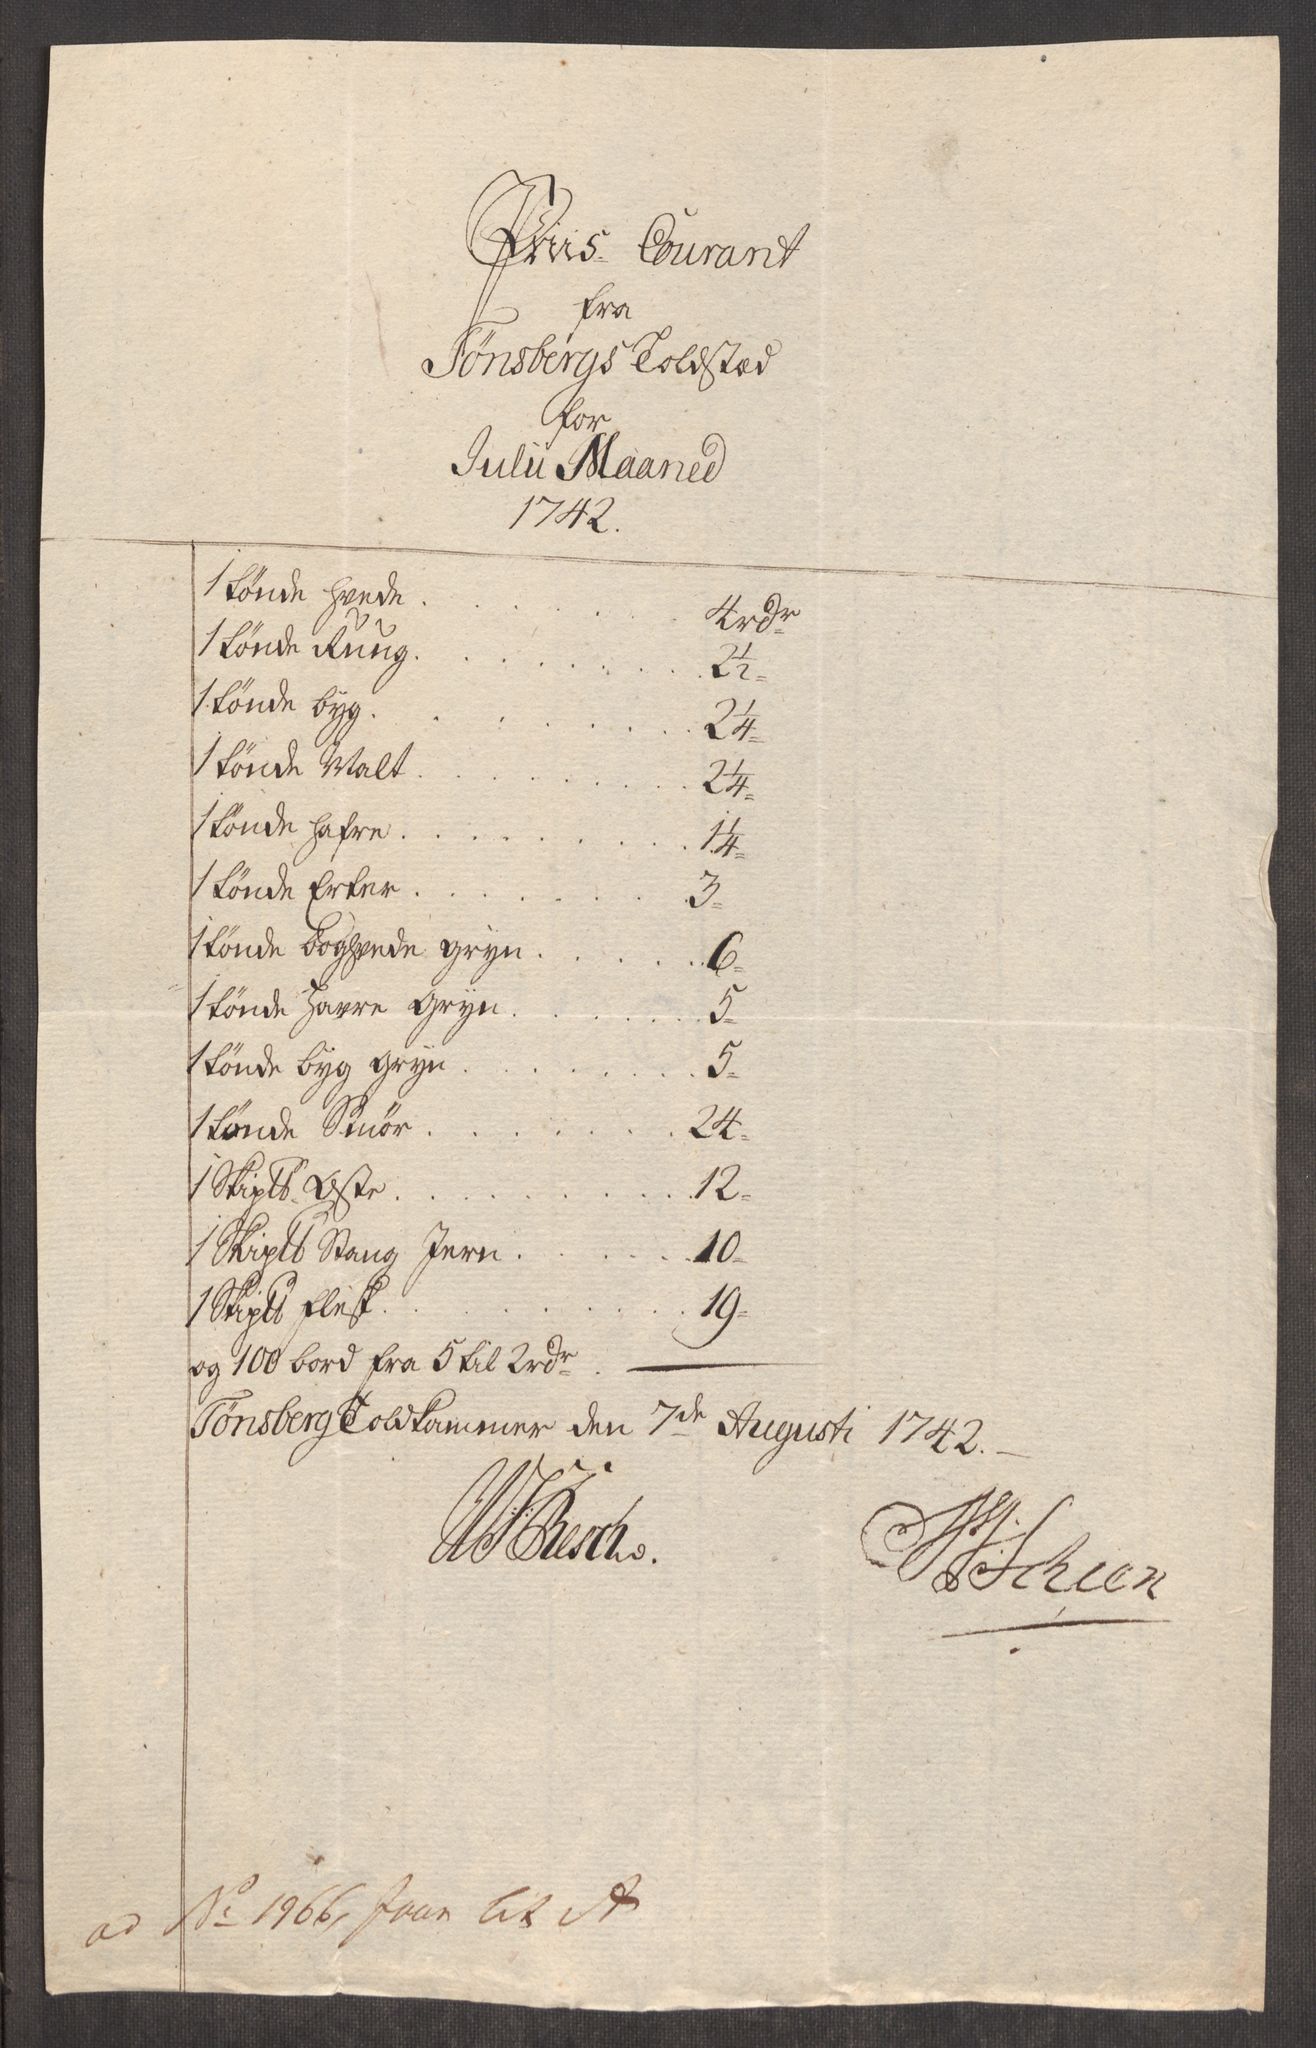 Priis Courant
fra
Tønsbergs Toldstæd
for
Julii Maaned
1742.
1 tønde Hvede . . . . . 4 rdr
1 tønde Rüüg . . . . . 2 1/2 =
1 tønde byg . . . . . 2 1/4 =
1 tønde Malt . . . . . 2 1/4 =
1 tønde Hafre . . . . . 1 1/4 =
1 tønde Erter . . . . . 3 =
1 tønde boghvede gryn . . . . . 6 =
1 tønde Havre Gryn . . . . . 5 =
1 tønde byg gryn . . . . . 5 =
1 tønde Smør . . . . . 24 =
1 Skip℔ Oste . . . . . 12 =
1 Skip℔ Stang Jern . . . . . 10 =
1 Skip℔ Flesk . . . . . 19 =
og 100 bord fra 5 til 2 rdr . —
Tønsberg Toldkammer den 7de Augusti 1742. —
Resch.
ad No 1966, Lit A